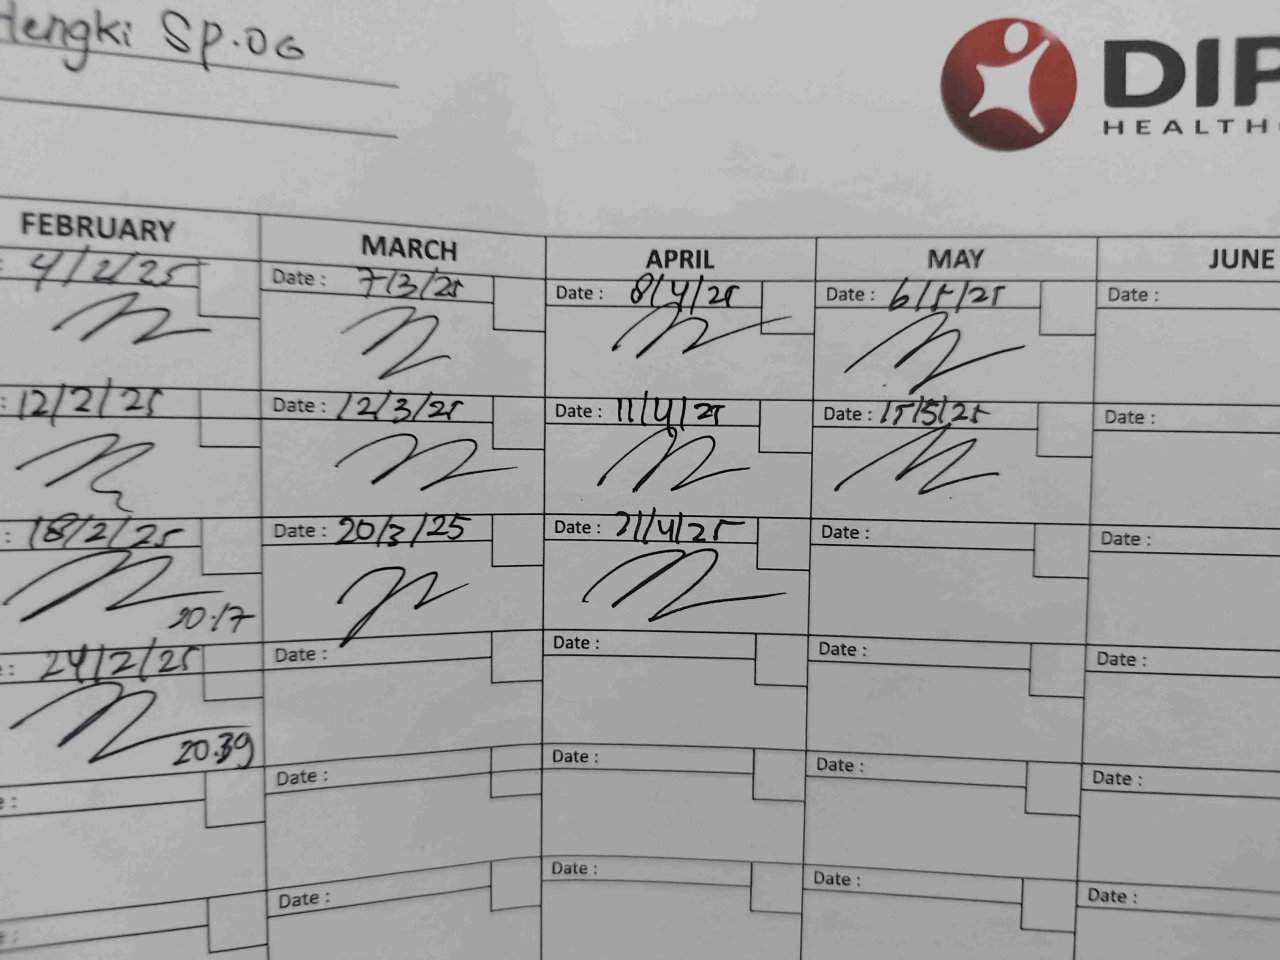 Hengki Sp.OG
DIP
HEALTHC
FEBRUARY MARCH APRIL MAY JUNE
: 4/2/25 Date : 7/3/25 Date : 8/4/25 Date : 6/5/25 Date :
: 12/2/25 Date : 12/3/25 Date : 11/4/25 Date : 15/5/25 Date :
: 18/2/25 Date : 20/3/25 Date : 21/4/25 Date : Date :
20.17
e: 24/2/25 Date : Date : Date : Date :
20.39
e : Date : Date : Date : Date :
e : Date : Date : Date : Date :